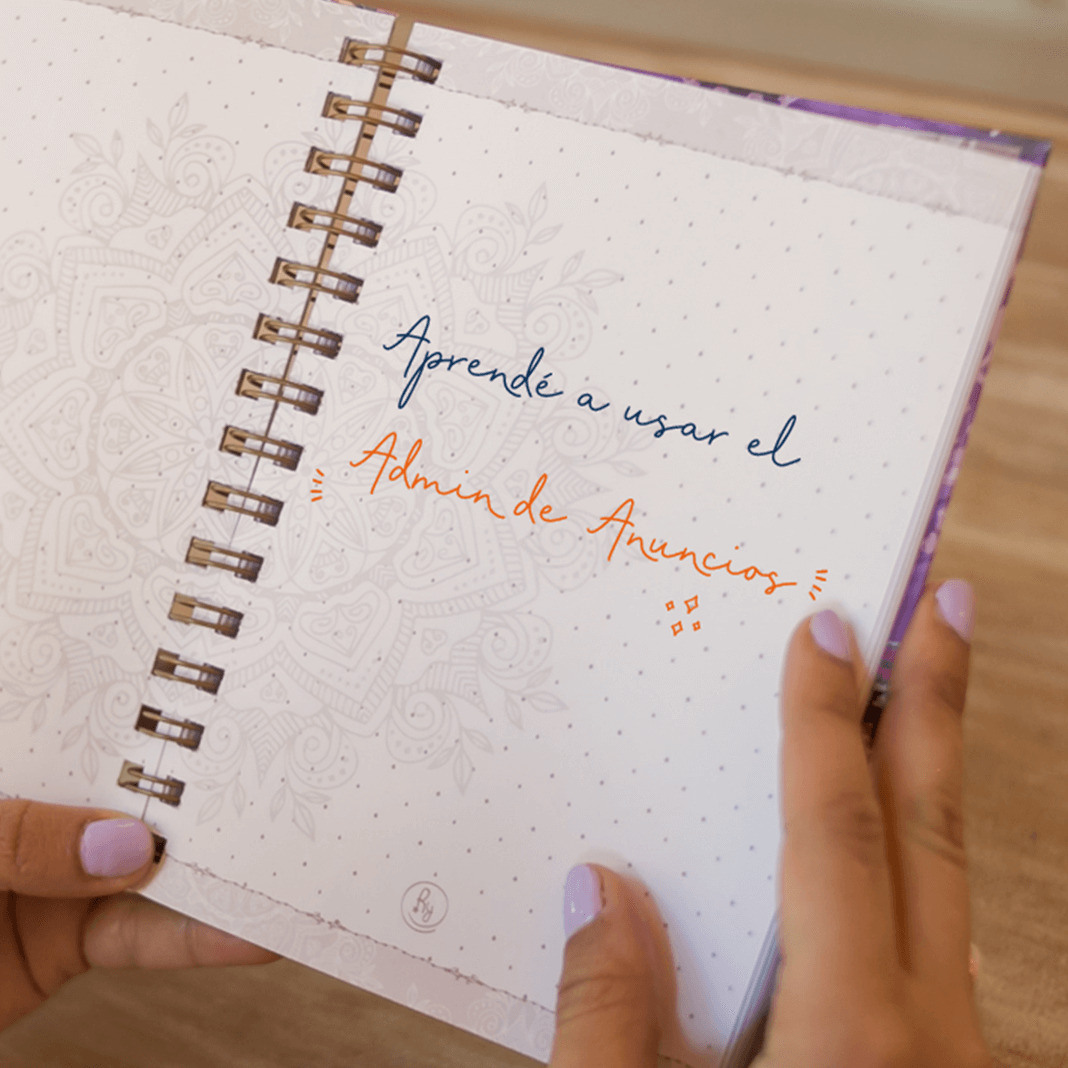 Aprendé a usar el
Admin de Anuncios